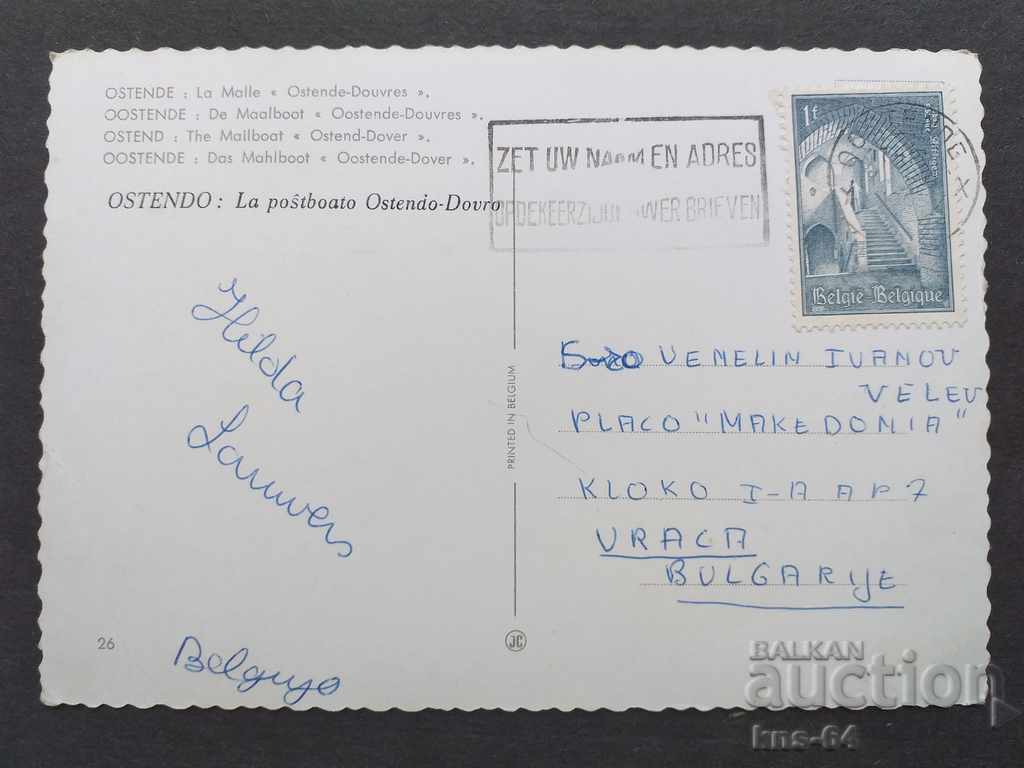 OSTENDE : La Malle « Ostende-Douvres ».
OOSTENDE : De Maalboot « Oostende-Douvres ».
OSTEND : The Mailboat « Ostend-Dover ».
OOSTENDE : Das Mahlboot « Oostende-Dover ».
OSTENDO : La poŝtboato Ostendo-Dovro
ZET UW NAAM EN ADRES
OP DE KEERZIJDE UWER BRIEVEN
1f
België-Belgique
Hilda
Lauwers
Belgujo
PRINTED IN BELGIUM
VENELIN IVANOV
VELEV
PLACO "MAKEDONIA"
KLOKO I-A AP 7
VRACA
BULGARIJE
26
JC
BALKAN
auction
kns-64